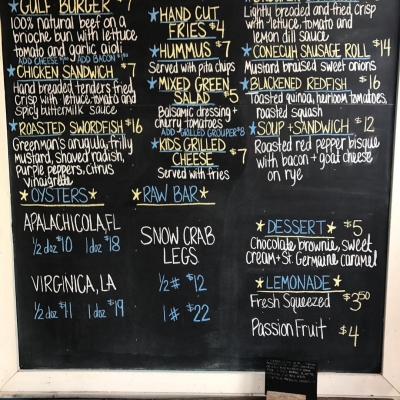 ★GULF BURGER $7
100% natural beef on a
brioche bun with lettuce
tomato and garlic aioli
ADD CHEESE ADD BACON
★CHICKEN SANDWICH $7
Hand breaded tenders fried
crisp with lettuce, tomato and
spicy buttermilk sauce
★ROASTED SWORDFISH $16
Greenman's arugula, frilly
mustard, shaved radish,
purple peppers, citrus
vinaigrette
★OYSTERS★
APALACHICOLA, FL
½ doz $10 1 doz $18
VIRGINICA, LA
½ doz $11 1 doz $19
★HAND CUT
FRIES $4
★HUMMUS $7
Served with pita chips
★MIXED GREEN
SALAD $5
Balsamic dressing +
cherry tomatoes
ADD GRILLED GROUPER $8
★KIDS GRILLED
CHEESE $7
Served with fries
★RAW BAR★
SNOW CRAB
LEGS
½ # $12
1 # $22
Lightly breaded and fried crisp
with lettuce, tomato and
lemon dill sauce
★CONECUH SAUSAGE ROLL $14
Mustard braised sweet onions
★BLACKENED REDFISH $16
Toasted quinoa, heirloom tomatoes,
roasted squash
★SOUP + SANDWICH $12
Roasted red pepper bisque
with bacon + goat cheese
on rye
★DESSERT★ $5
Chocolate brownie, sweet
cream + St. Germaine caramel
★LEMONADE★
Fresh Squeezed $3.50
Passion Fruit $4